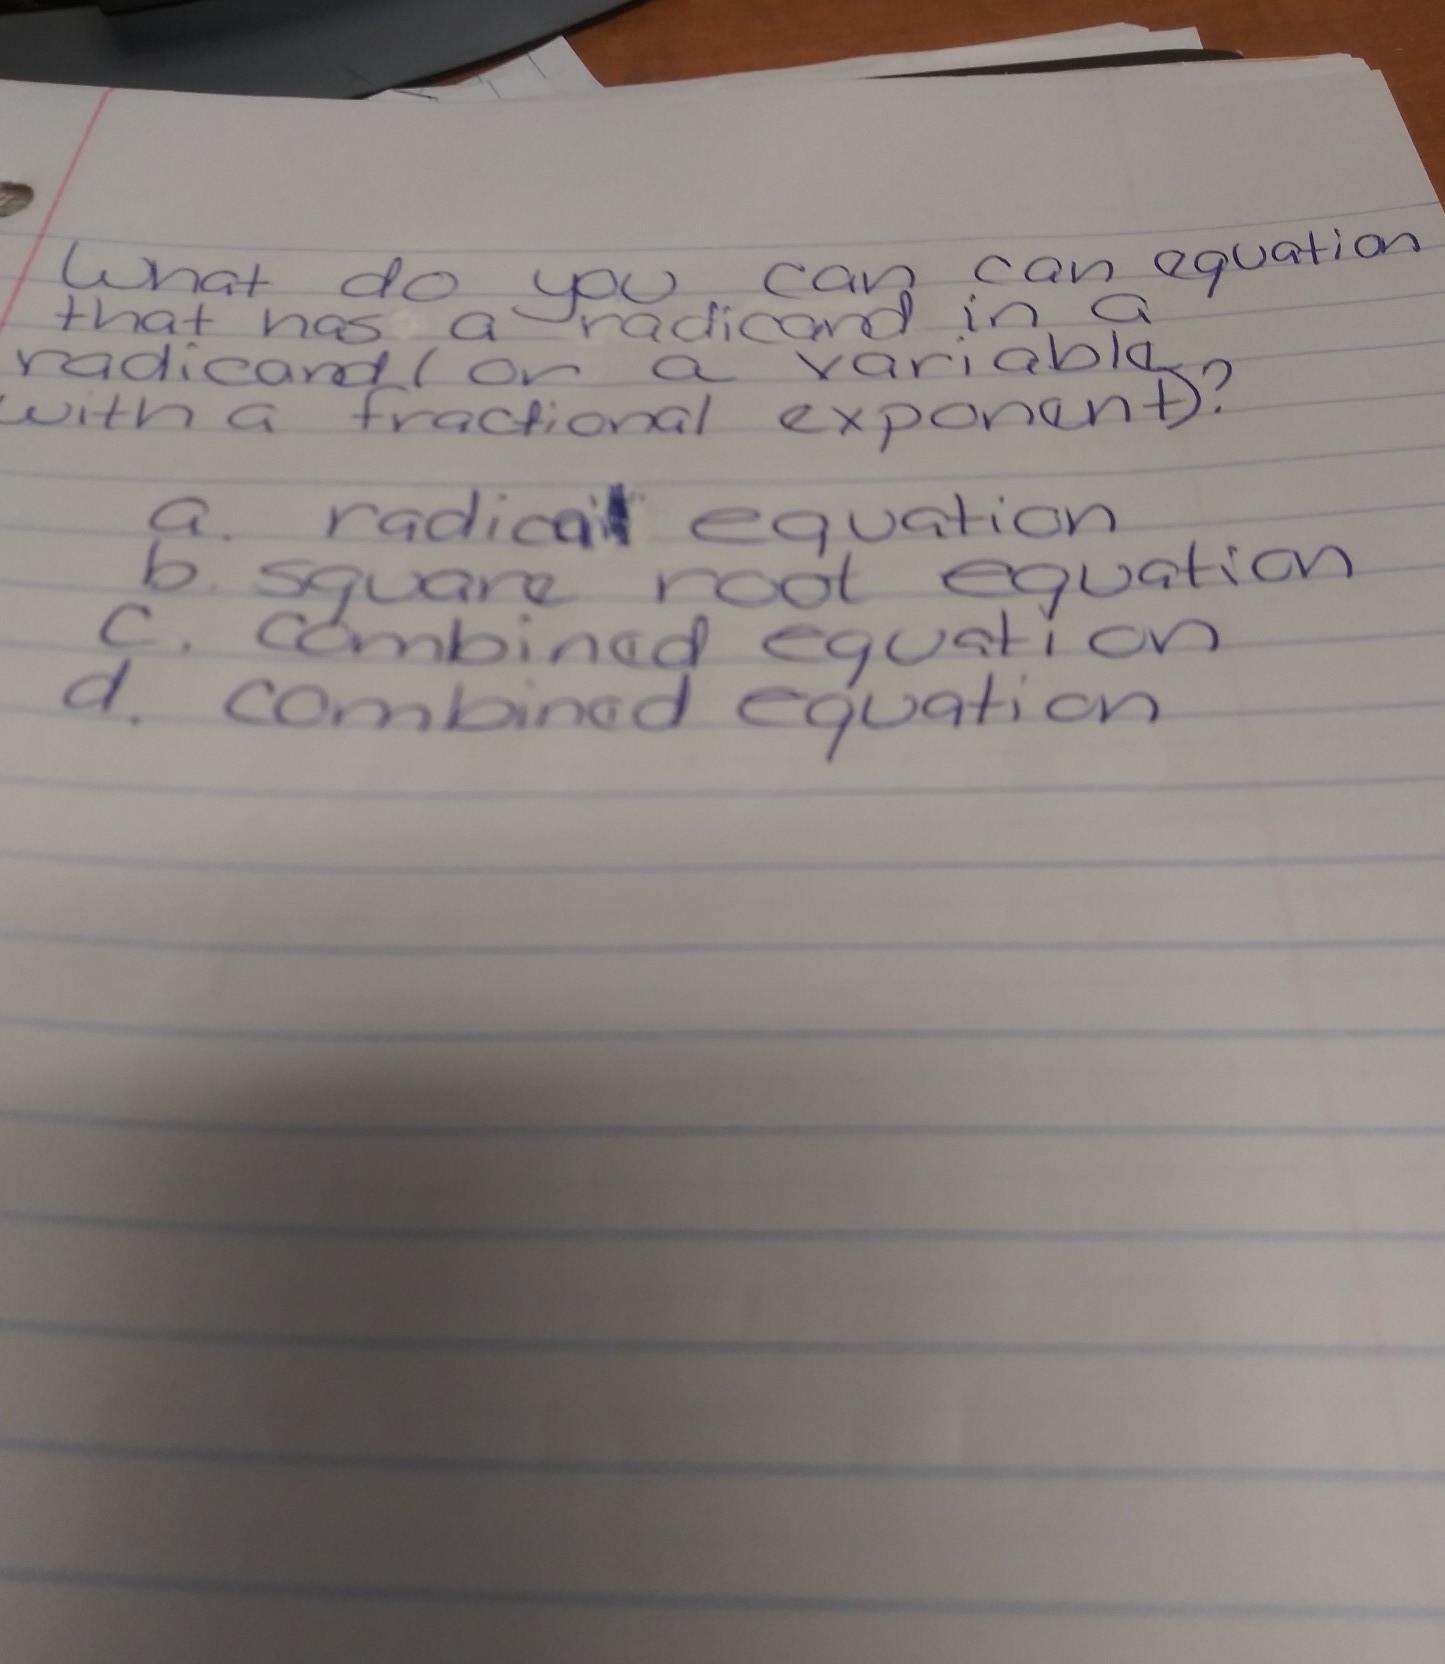 What do you can can equation
that has a radicand in a
radicand (or a variable
with a fractional exponent)?
a. radical equation
b. square root equation
c. combined equation
d. combined equation